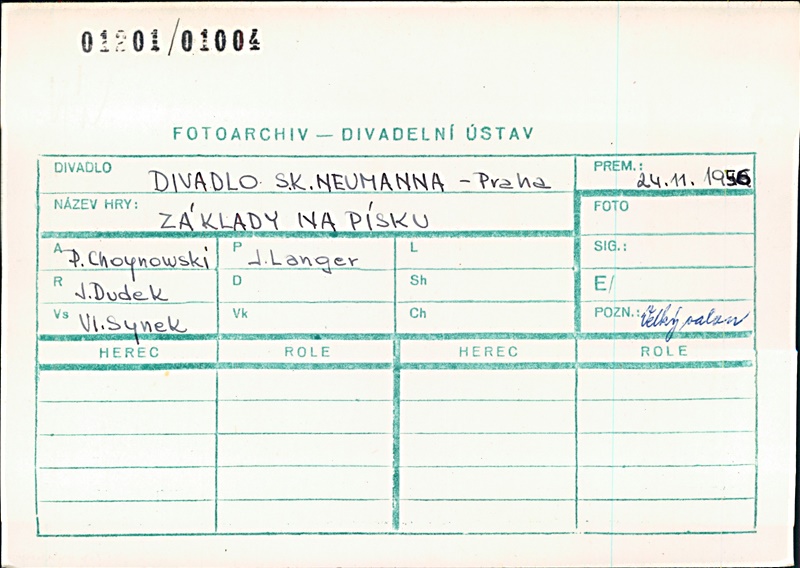 01201/01004
FOTOARCHIV — DIVADELNÍ ÚSTAV
DIVADLO DIVADLO S.K. NEUMANNA - Praha PREM.: 24.11. 1956
NÁZEV HRY: ZÁKLADY NA PÍSKU FOTO
A P. Choynowski P J. Langer L SIG.:
R J. Dudek D Sh E/
Vs Vl. Synek Vk Ch POZN.: Velký
HEREC ROLE HEREC ROLE